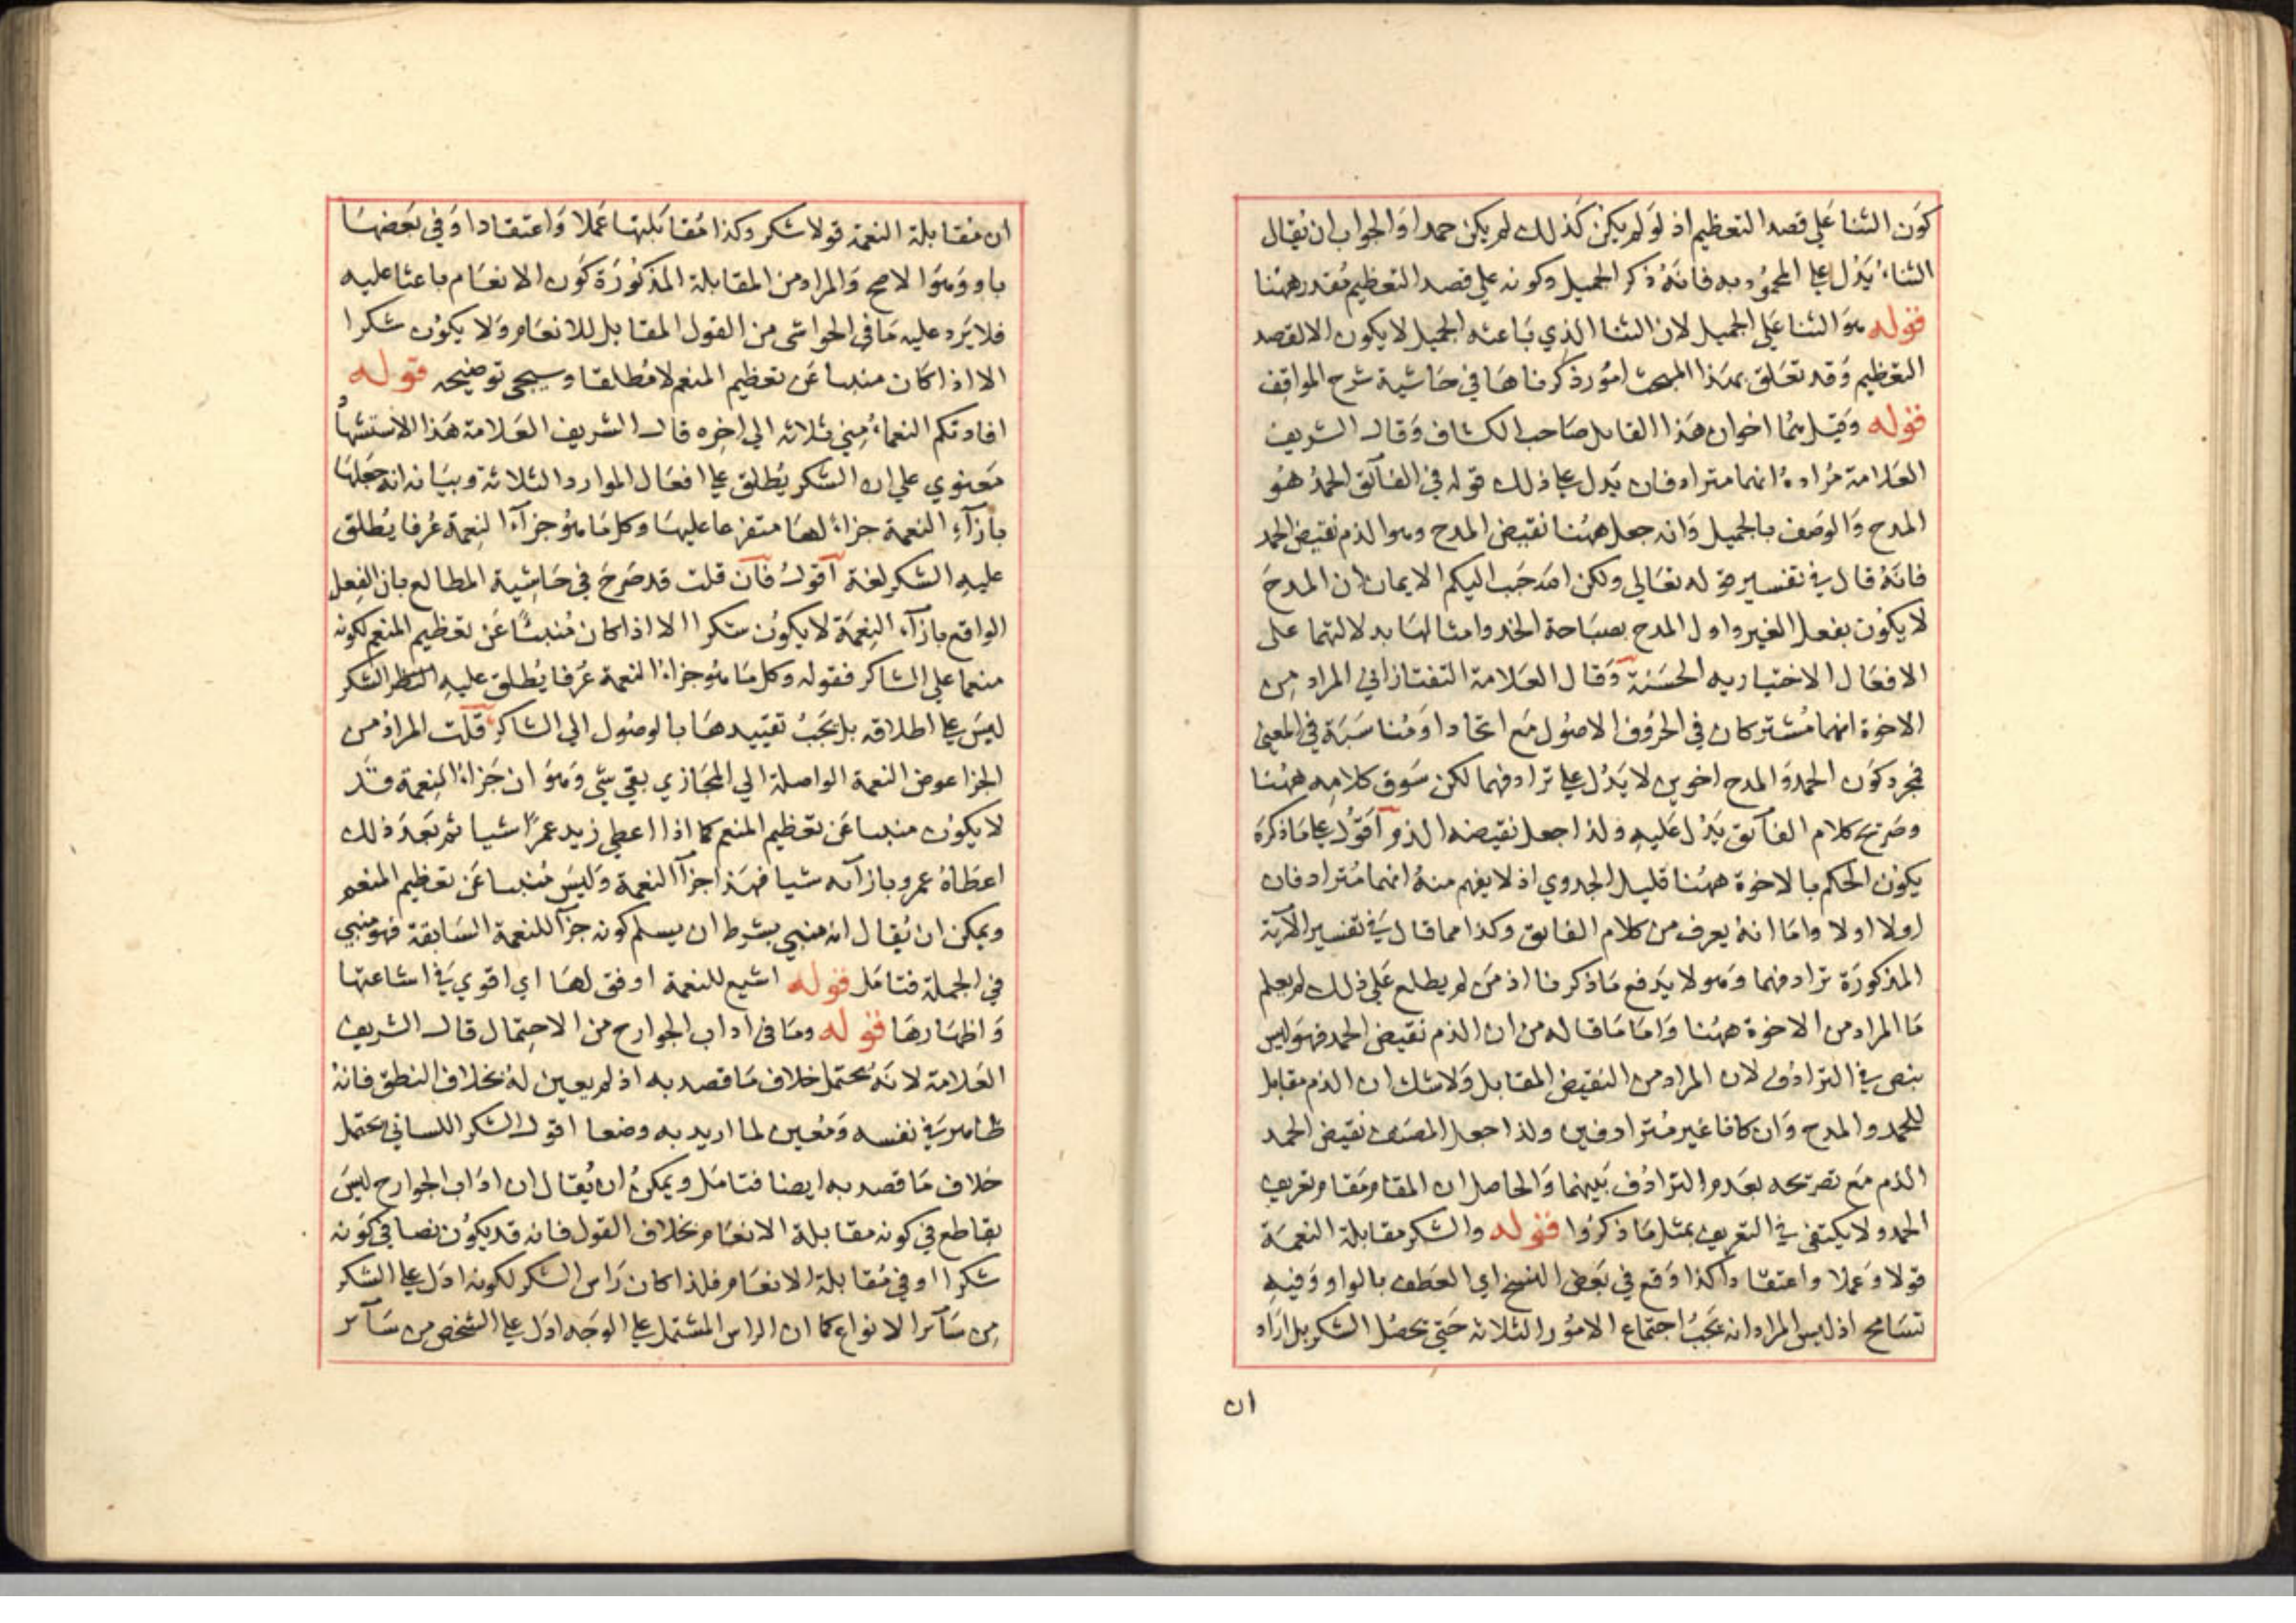 كون الثنا علي قصد التعظيم اذ لو لم يكن كذلك لم يكن حمدا والجواب ان يقال
الثناء يدل علي المحمود به فانه ذكر الجميل وكونه علي قصد التعظيم مقدر ههنا
قوله هو الثنا علي الجميل لان الثنا الذي باعثه الجميل لا يكون الا لقصد
التعظيم وقد تعلق بهذا المبحث امور ذكرناها في حاشية شرح المواقف
قوله وقيل هما اخوان هذا القايل صاحب الكشاف وقال الشريف
العلامة مراده انهما مترادفان يدل علي ذلك قوله في الفآئق الحمد هو
المدح والوصف بالجميل وانه جعل ههنا نقيض المدح وهو الذم نقيض الحمد
فانه قال في تفسير قوله تعالي ولكن الله حبب اليكم الايمان ان المدح
لا يكون بفعل الغير واول المدح بصباحة الخد وامثالها بدلالتهما على
الافعال الاختياريه الحسنة وقال العلامة التفتازاني المراد من
الاخوة انهما مشتركان في الحروف الاصول مع اتحاد او مناسبة في المعني
فمجرد كون الحمد والمدح اخوين لا يدل علي ترادفهما لكن سوق كلامه ههنا
وصريح كلام الفآئق يدل عليه ولذا جعل نقيضه الذم اقول علي ما ذكره
يكون الحكم بالاخوة ههنا قليل الجدوي اذ لا يفهم منه انهما مترادفان
اولا اولا واما انه يعرف من كلام الفايق وكذا مما قال في تفسير الآية
المذكورة ترادفهما وهو لا يدفع ما ذكرنا اذ من لم يطلع علي ذلك لم يعلم
ما المراد من الاخوة ههنا واما ما قاله من ان الذم نقيض الحمد فهو ليس
بنص في الترادف لان المراد من النقيض المقابل ولا شك ان الذم مقابل
للحمد والمدح وان كانا غير مترادفين ولذا جعل المصنف نقيض الحمد
الذم مع تصريحه بعدم الترادف بينهما والحاصل ان المقام مقام تعريف
الحمد ولا يكتفى في التعريف بمثل ما ذكروا قوله والشكر مقابلة النعمة
قولا وعملا واعتقادا كذا وقع في بعض النسخ اي العطف بالواو وفيه
تسامح اذ ليس المراد انه يجب اجتماع الامور الثلاثه حتي يحصل الشكر بل اراد
ان
ان مقابلة النعمة قولا شكر وكذا مقابلتها عملا واعتقادا وفي بعضها
باو وهو الاصح والمراد من المقابلة المذكورة كون الانعام باعثا عليه
فلا يرد عليه ما في الحواشي من القول المقابل للانعام ولا يكون شكرا
الا اذا كان منبئا عن تعظيم المنعم لا مطلقا وسيجي توضيحه قوله
افادتكم النعماء مني ثلاثه الي اخره قال الشريف العلامة هذا الاستشهاد
معنوي علي ان الشكر يطلق علي افعال الموارد الثلاثة وبيانه انه جعلها
بازآء النعمة جزاء لها متفرعا عليها وكل ما هو جزآء النعمة عرفا يطلق
عليه الشكر لغة اقول فان قلت قد صرح في حاشية المطالع بان الفعل
الواقع بازآء النعمة لا يكون شكرا الا اذا كان منبئا عن تعظيم المنعم لكونه
منعما علي الشاكر فقوله وكل ما هو جزاء النعمة عرفا يطلق عليه الشكر
ليس علي اطلاقه بل يجب تقييدها بالوصول الي الشاكر قلت المراد من
الجزا عوض النعمة الواصلة الي المجازي بقي شي وهو ان جزاء النعمة قد
لا يكون منبئا عن تعظيم المنعم كما اذا اعطي زيد عمرا شيا ثم بعد ذلك
اعطاه عمرو بازآئه شيا فهذا جزآ النعمة وليس منبئا عن تعظيم المنعم
ويمكن ان يقال انه منبي بشرط ان يسلم كونه جزآ للنعمة السابقة فهو منبي
في الجملة فتامل قوله اشيع للنعمة اوفق لها اي اقوي في اشاعتها
واظهارها قوله وما في اداب الجوارح من الاحتمال قال الشريف
العلامة لانه يحتمل خلاف ما قصد به اذ لم يعين له بخلاف النطق فانه
ظاهر في نفسه ومعين لما اريد به وضعا اقول الشكر اللساني يحتمل
خلاف ما قصد به ايضا فتامل ويمكن ان يقال ان اداب الجوارح ليس
بقاطع في كونه مقابلة الانعام بخلاف القول فانه قد يكون نصا في كونه
شكرا او في مقابلة الانعام فلذا كان راس الشكر لكونه ادل علي الشكر
من سآئر الانواع كما ان الراس المشتمل علي الوجه ادل علي الشخص من سآئر